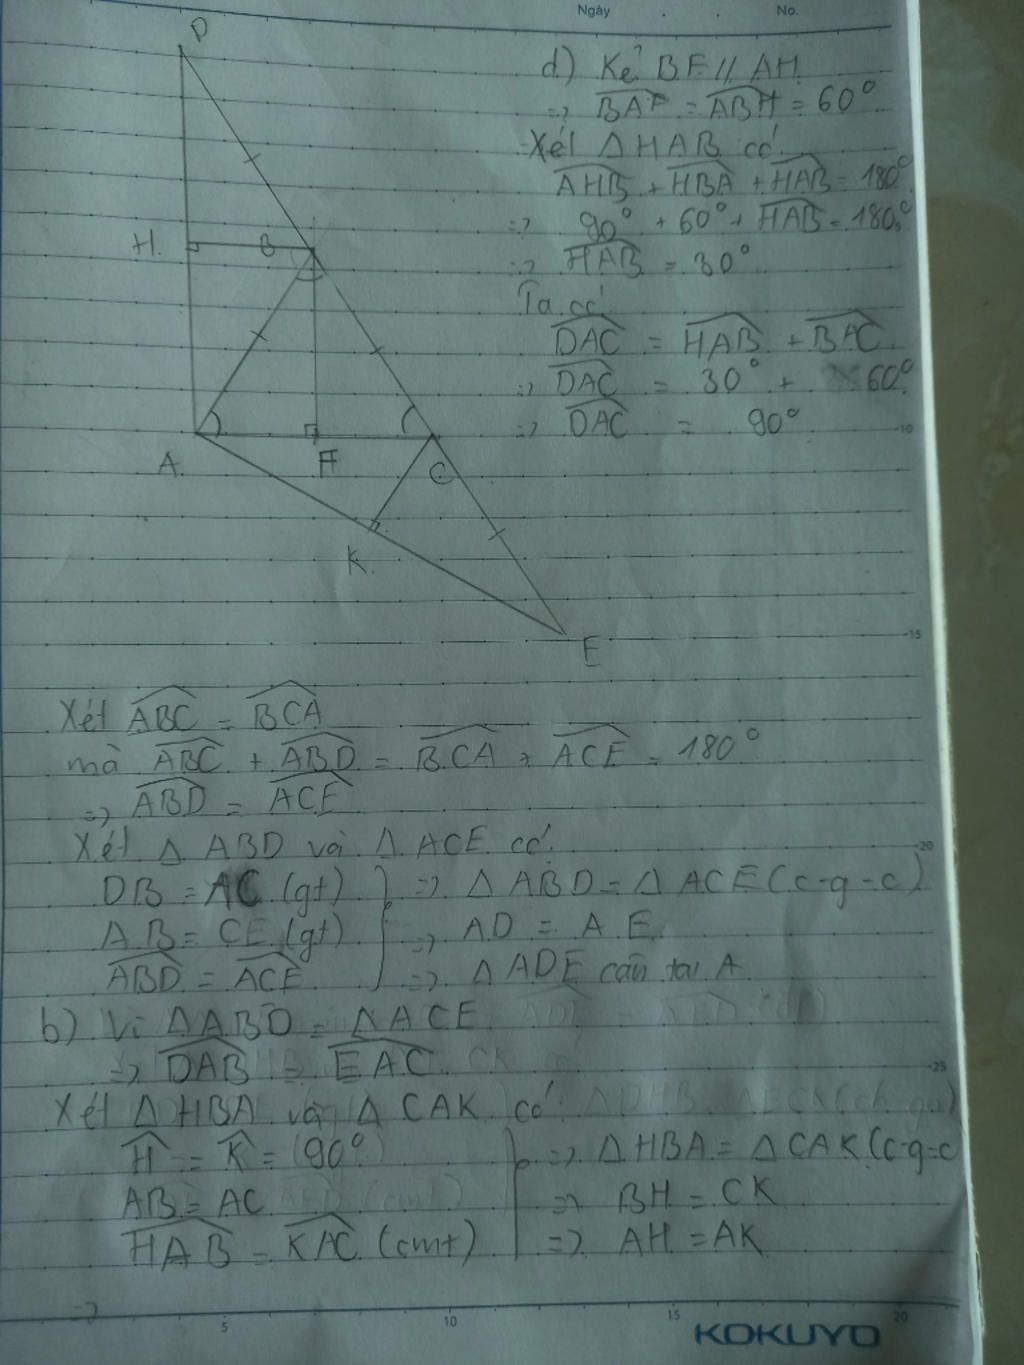 Ngày . . No.
D
H
B
A
F
C
K
E
d) Kẻ BF // AH
=> BAF = ABH = 60°
Xét Δ HAB có
AHB + HBA + HAB = 180°
=> 90° + 60° + HAB = 180°
=> HAB = 30°
Ta có
DAC = HAB + BAC
=> DAC = 30° + 60°
=> DAC = 90°
10
15
Xét ABC = BCA
mà ABC + ABD = BCA + ACE = 180°
=> ABD = ACE
Xét Δ ABD và Δ ACE có
20
DB = AC (gt) => Δ ABD = Δ ACE (c-g-c)
AB = CE (gt) => AD = AE
ABD = ACE => Δ ADE cân tại A
b) Vì ΔABD = ΔACE
=> DAB = EAC
25
Xét Δ HBA và Δ CAK có
H = K = (90°) => Δ HBA = Δ CAK (c-g-c
AB = AC => BH = CK
HAB = KAC (cmt) => AH = AK
=>
5 10 15 20
KOKUYO